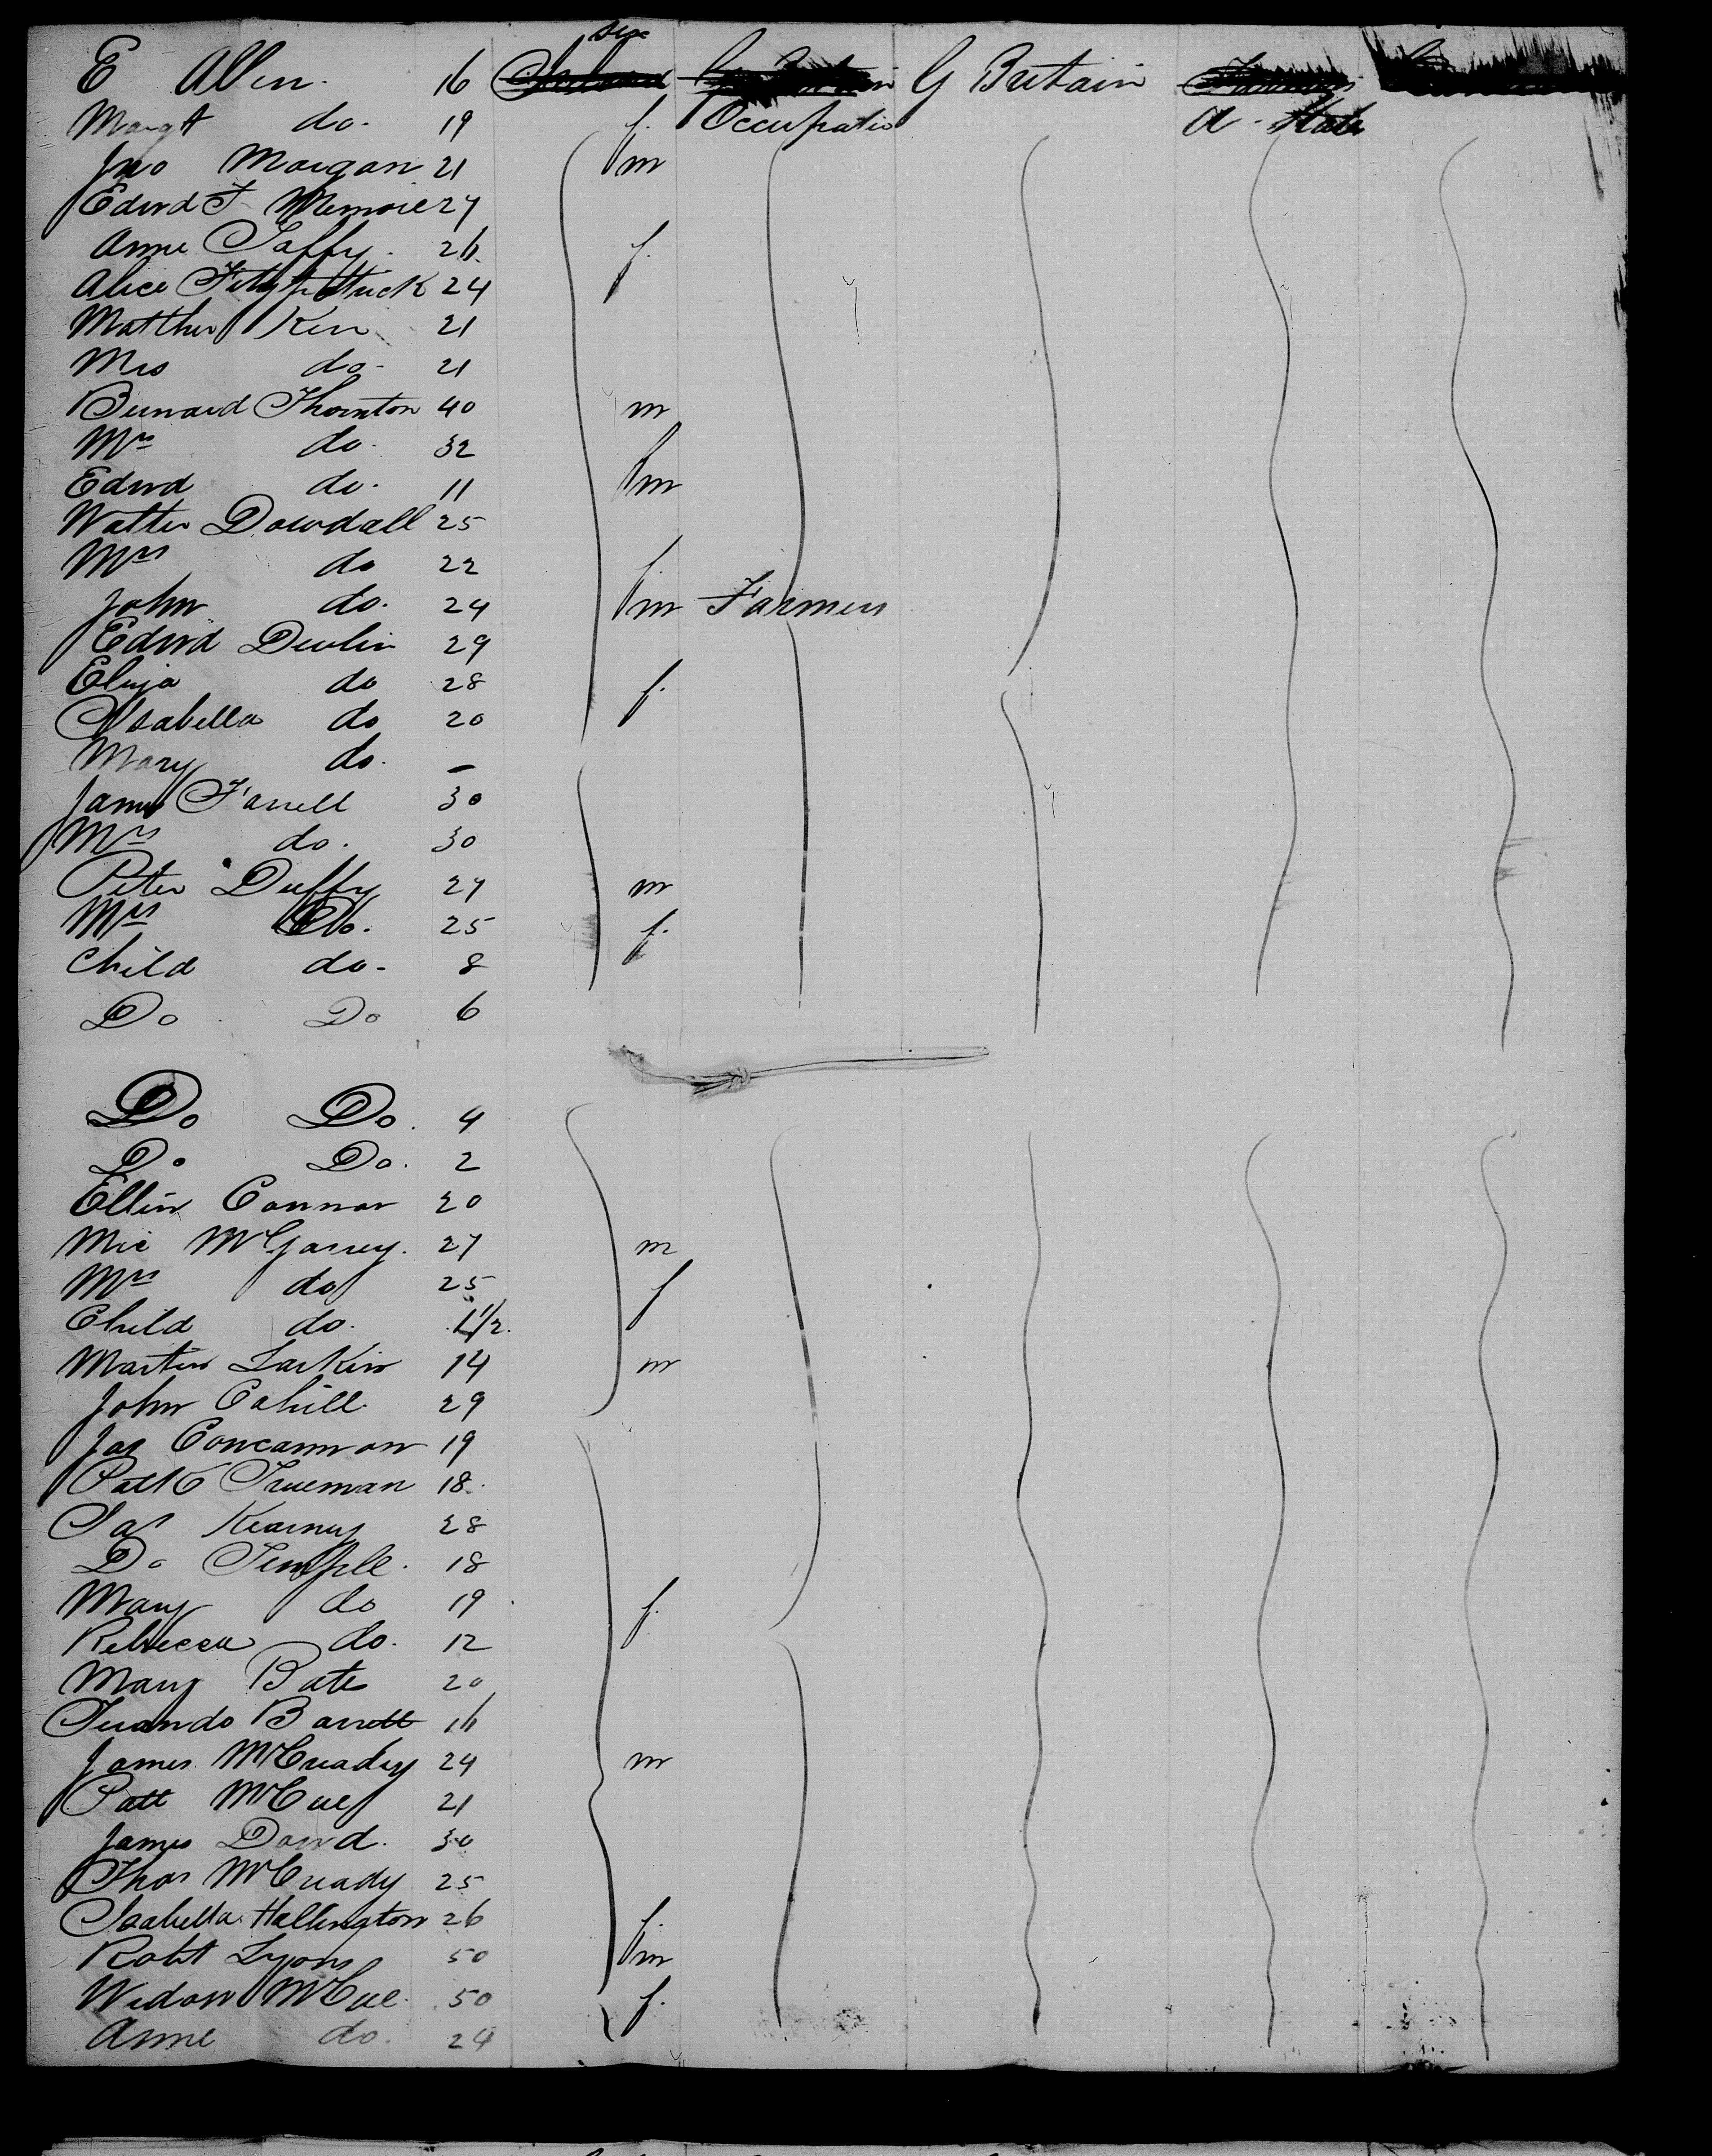 sex
E Allen. 16 G Britain
Margt do. 19 f. Occupatio U. States
Jno Morgan 21 m
Edwd F 27
Anne Taffy. 26. f.
Alice Fitzpatrick 24
Matthew Kerr 21
Mrs do- 21
Bernard Thornton 40 m
Mrs do. 32 f
Edwd do. 11 m
Walter Dowdall 25
Mrs do 22 f
John do. 24 m Farmers
Edwd Devlin 29
Eliza do 28 f.
Isabella do 20
Mary do. -
James Farrell 30
Mrs do. 30
Peter Duffy 27 m
Mrs Do. 25 f.
Child do- 8
Do Do 6
Do Do. 4
Do Do. 2
Ellen Connor 20
Mic McGarrey. 27 m
Mrs do 25 f
Child do. 1 1/2.
Martin Larkin 14 m
John Cahill 29
Jas Concannon 19
Patk Trueman 18.
Jas Kearney 28
Do Temple. 18
Mary do 19 f.
Rebecca do. 12
Mary Bate 20
Barrett 16
James McCready 24 m
Patt McCue 21
James Dowd. 30
Thos McCready 25
Isabella Hallington 26 f.
Robt Lyons 50 m
Widow McCue. 50 f.
Anne do. 24